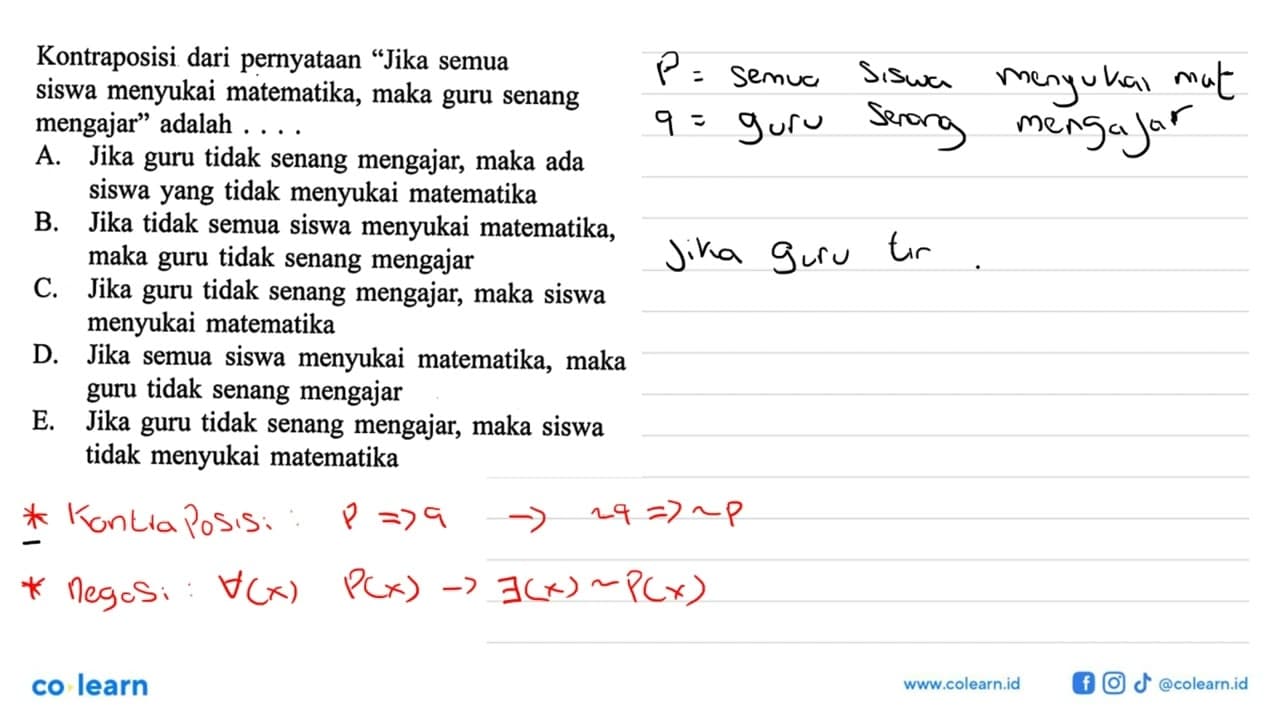 Kontraposisi dari pernyataan “Jika semua
siswa menyukai matematika, maka guru senang
mengajar” adalah . . . .
A. Jika guru tidak senang mengajar, maka ada
siswa yang tidak menyukai matematika
B. Jika tidak semua siswa menyukai matematika,
maka guru tidak senang mengajar
C. Jika guru tidak senang mengajar, maka siswa
menyukai matematika
D. Jika semua siswa menyukai matematika, maka
guru tidak senang mengajar
E. Jika guru tidak senang mengajar, maka siswa
tidak menyukai matematika
P = semua siswa menyukai mat
q = guru senang mengajar
Jika guru
* Kontraposisi : P => q -> ~q => ~P
* negasi : ∀(x) P(x) -> ∃(x) ~P(x)
co learn
www.colearn.id
@colearn.id